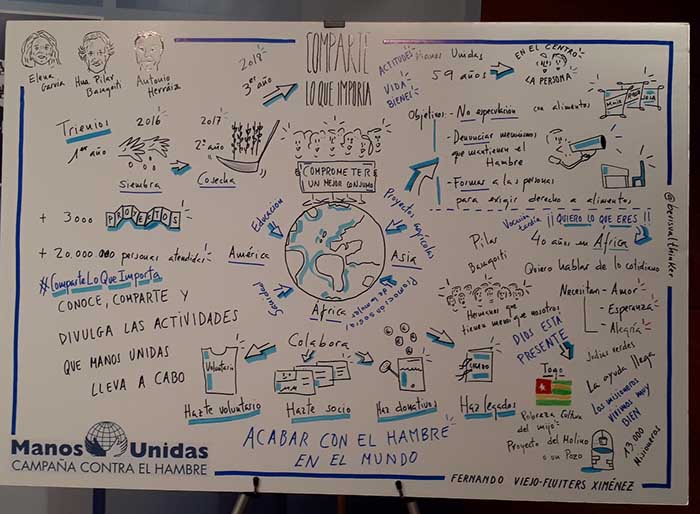 Elena
García
Hna. Pilar
Basagoiti
Antonio
Herráiz
2018
3er año
COMPARTE
LO QUE IMPORTA
ACTITUDES
VIDA
BIENES
Manos Unidas
59 años
EN EL CENTRO
LA PERSONA
Objetivos:
- No especulación
con alimentos
- Denunciar mecanismos
que mantienen el
Hambre
- Formar a las personas
para exigir derecho a alimentos
Trienios
2016
1er año
Siembra
2017
2º año
Cosecha
COMPROMETER
UN MEJOR CONSUMO
+ 3000
PROYECTOS
+ 20.000.000 personas atendidas
#ComparteLoQueImporta
CONOCE, COMPARTE Y
DIVULGA LAS ACTIVIDADES
QUE MANOS UNIDAS
LLEVA A CABO
Educación
Proyectos agrícolas
América
Asia
África
Sanidad
Promoción social
de la mujer
Vocación
¡¡QUIERO LO QUE ERES!!
Pilar
Basagoiti
40 años en África
Quiero hablar de lo cotidiano
Hermanos que
tienen menos que nosotros
Necesitan - Amor
- Esperanza
- Alegría
DIOS ESTÁ
PRESENTE
Judías verdes
La ayuda llega
Los misioneros
vivimos muy
BIEN
13.000
Misioneros
Togo
Pobreza, Cultura
del mijo
Proyecto del Molino
o un Pozo
Colabora
Voluntario
LEGADO
Hazte voluntario
Hazte socio
Haz donativos
Haz legados
ACABAR CON EL HAMBRE
EN EL MUNDO
Manos Unidas
CAMPAÑA CONTRA EL HAMBRE
FERNANDO VIEJO-FLUITERS XIMÉNEZ